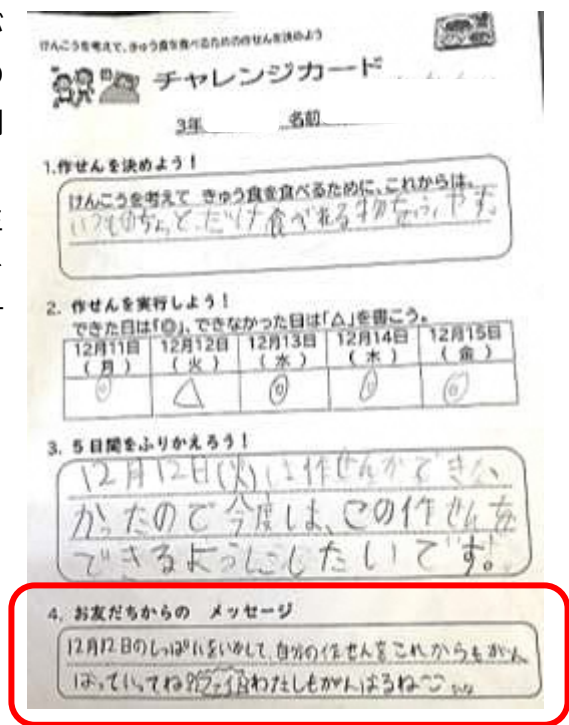 けんこうを考えて、きゅう食を食べるための作せんを決めよう
チャレンジカード
3年 名前
1.作せんを決めよう!
けんこうを考えて きゅう食を食べるために、これからは、
いつものちょっとだけ食べれる物をふやす。
2. 作せんを実行しよう!
できた日は「◎」、できなかった日は「△」を書こう。
12月11日 12月12日 12月13日 12月14日 12月15日
(月) (火) (水) (木) (金)
◎ △ ◎ ◎ ◎
3. 5日間をふりかえろう!
12月12日(火)は作せんができな
かったので今度は、この作せんを
できるようにしたいです!
4. お友だちからの メッセージ
12月12日のしっぱいをいかして、自分の作せんをこれからもがん
ばっていってね ファイト わたしもがんばるね